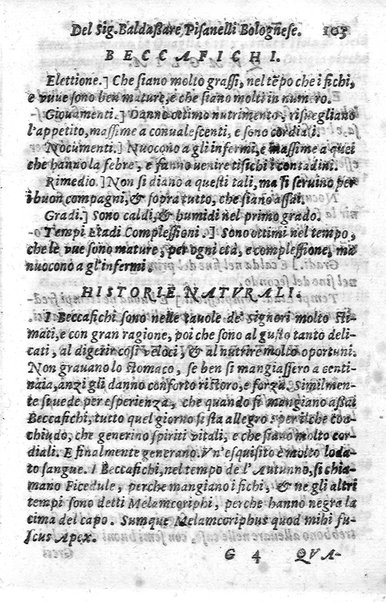 Del Sig. Baldaßare Pisanelli Bolognese. 103
BECCAFICHI.
Elettione.] Che siano molto grassi, nel tẽpo che i fichi,
e vuue sono ben mature, e che siano molti in num.ro.
Giouamenti.] Danno ottimo nutrimento, risuegliano
l'appetito, massime a conualescenti, e sono cordiali.
Nocumenti.] Nuocono a gl'infermi, e massime a quei
che hanno la febre, e fanno venire tisichi i contadini.
Rimedio.] Non si diano a questi tali, ma si seruino per
i buon compagni, & sopra tutto, che siano assai.
Gradi.] Sono caldi, & humidi nel primo grado.
Tempi Etadi Complessioni.] Sono ottimi nel tempo,
che le vue sono mature, per ogni età, e complessione, ma
nuocono a gl'infermi.
HISTORIE NATVRALI.
I Beccafichi sono nelle tauole de' signori molto sti-
mati, e con gran ragione, poi che sono al gusto tanto deli-
cati, al digerir cosi veloci, & al nutrire molto oportuni.
Non grauano lo stomaco, se ben si mangiassero a centi-
naia, anzi gli danno conforto ristoro, e forza. Similmen-
te si vede per esperienza, che quando si mangiano assai
Beccafichi, tutto quel giorno si sta allegro: per il che con-
chiudo, che generino spiriti vitali, e che siano molto cor-
diali. E finalmente generano vn'esquisito e molto loda-
to sangue. I Beccafichi, nel tempo de l'Autunno, si chia-
mano Ficedule, perche mangiano i fichi, & ne gli altri
tempi sono detti Melamcoriphi, perche hanno negra la
cima del capo. Sumque Melamcoriphus quod mihi fu-
scus Apex.
G 4 QVA-